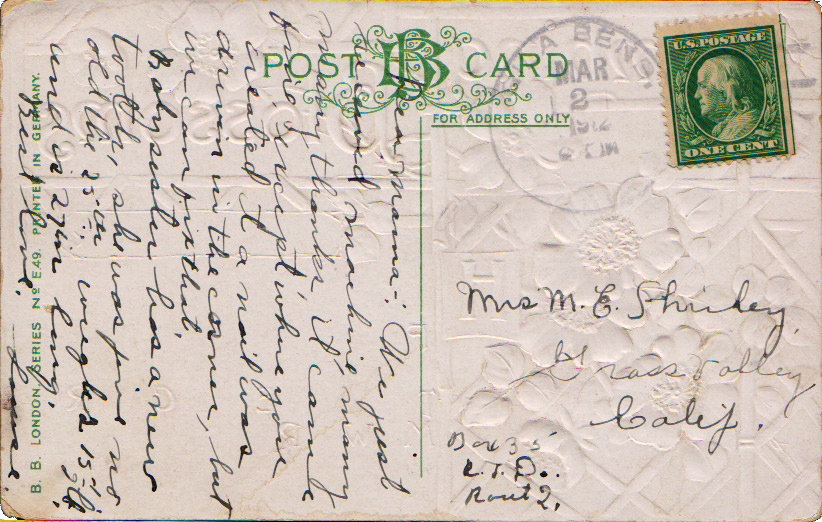 POST CARD
BB
FOR ADDRESS ONLY
U.S. POSTAGE
ONE CENT
A BENS
MAR
2
1912
Dear Mama:- We just
received machine, many
many thanks it came
fine, except where you
created it a nail was
driven in the corner, but
we can fix that.
Babysister has a new
tooth, she was five mo
old the 25th weighed 15 lb,
and is 27 in long,
Best love,
Mrs M. E. Shirkey
Grass Valley
Calif.
Box 35
R.F.D..
Route 2.
B. B. LONDON, SERIES No E49. PRINTED IN GERMANY.